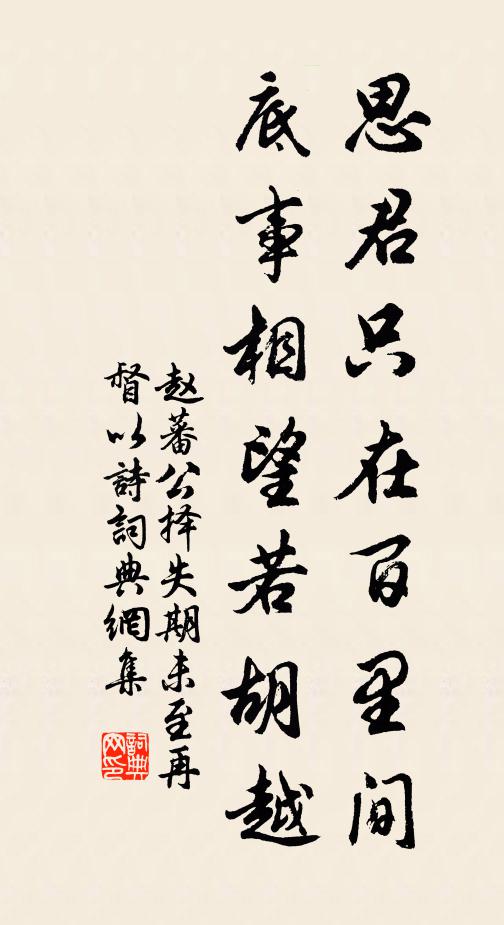 思君只在百里间
底事相望若胡越
赵蕃公择失期未至再
督以詩詞典網集
詞典
网印